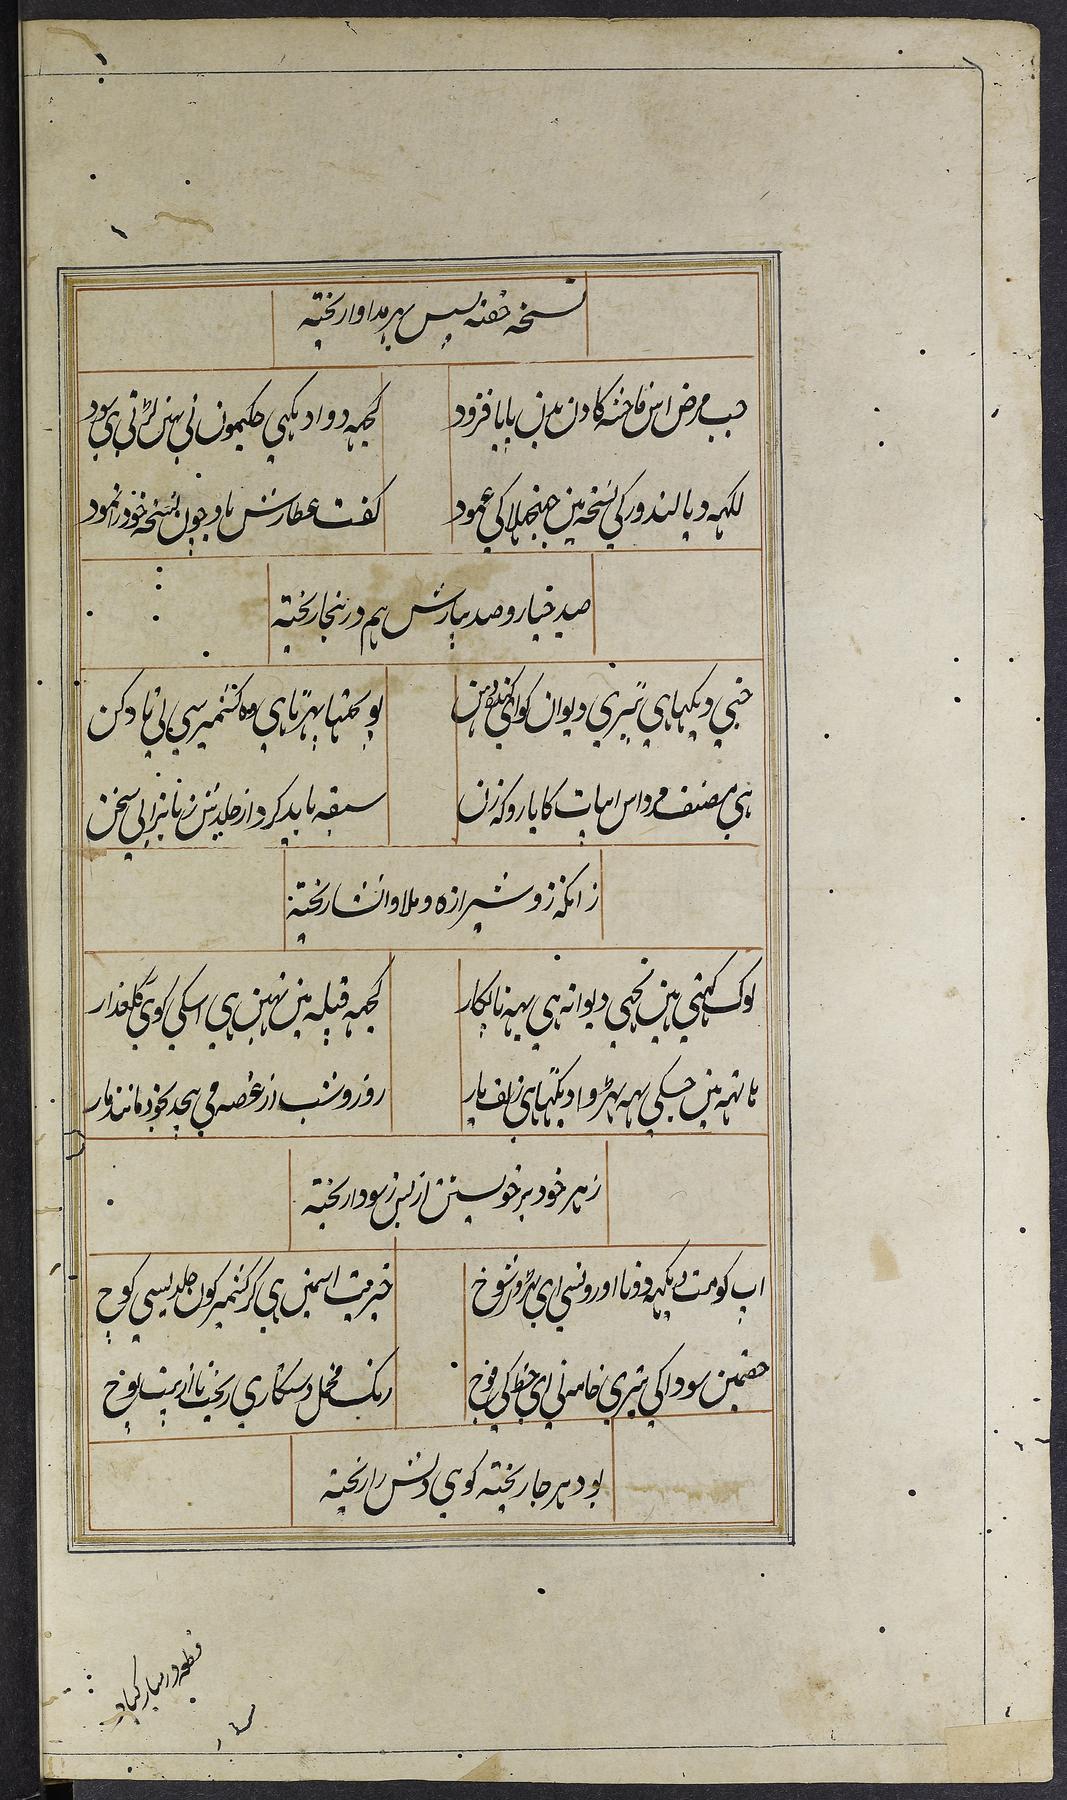 نسخه حقنه پس بهر مداوا ریخته
جب مرض اس فاحشه کا دن بدن پایا فزود
کچهه دوا دیکهی حکیمون نی نهین کرتی هی سود
لکهه دیا لندور کی نسخه مین جهنجلا کی عمود
کفت عطارش باو چون نسخه خود را نمود
صد خیار و صد بیارش هم درینجا ریخته
جنی دیکها هی تیری دیوان کو ای
پوچهتا پهرتا هی وه کشمیر سی لی تا دکن
هی مصنف مرد اس ابیات کا یارو که زن
سبقه باید کرد از جلدش زنان را بی سخن
زانکه زو شیرازه و ملا و انشا ریخته
لوک کهتی هین نجبی دیوانه هی یهه نابکار
کچهه قبیله مین نهین هی اسکی کوئی گلعذار
هاتهه مین جسکی یهه بهڑوا دیکهتا هی زلف یار
روز و شب از غصه می پیچد بخود مانند مار
زهر خود بر خویشتن از بس ز سودا ریخته
اپ کو مت دیکهه دونا اورونسی ای بهڑوی شوخ
خیریت اسمین هی کر کشمیر کون جلدیسی کوچ
حقمین سودا کی تیری خامه نی ای خط کی
رنک مخمل دستکاری ریخت تا از پوخ
بود هر جا ریخته کوهی دلش را ریخته
قطعه در مبارکباد